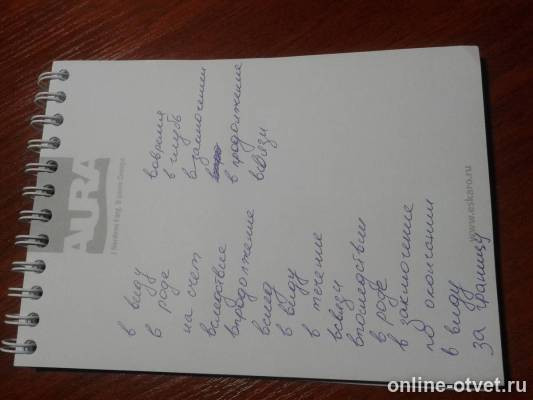 AURA
в виду
в роде
на счет
вследствие
впродолжение
вслед
в виду
в течение
всвязи
впоследствии
в роде
в заключение
по окончании
в виду
за границу
вовремя
в глубь
в заключении
в продолжение
всвязи
www.eskaro.ru
online-otvet.ru